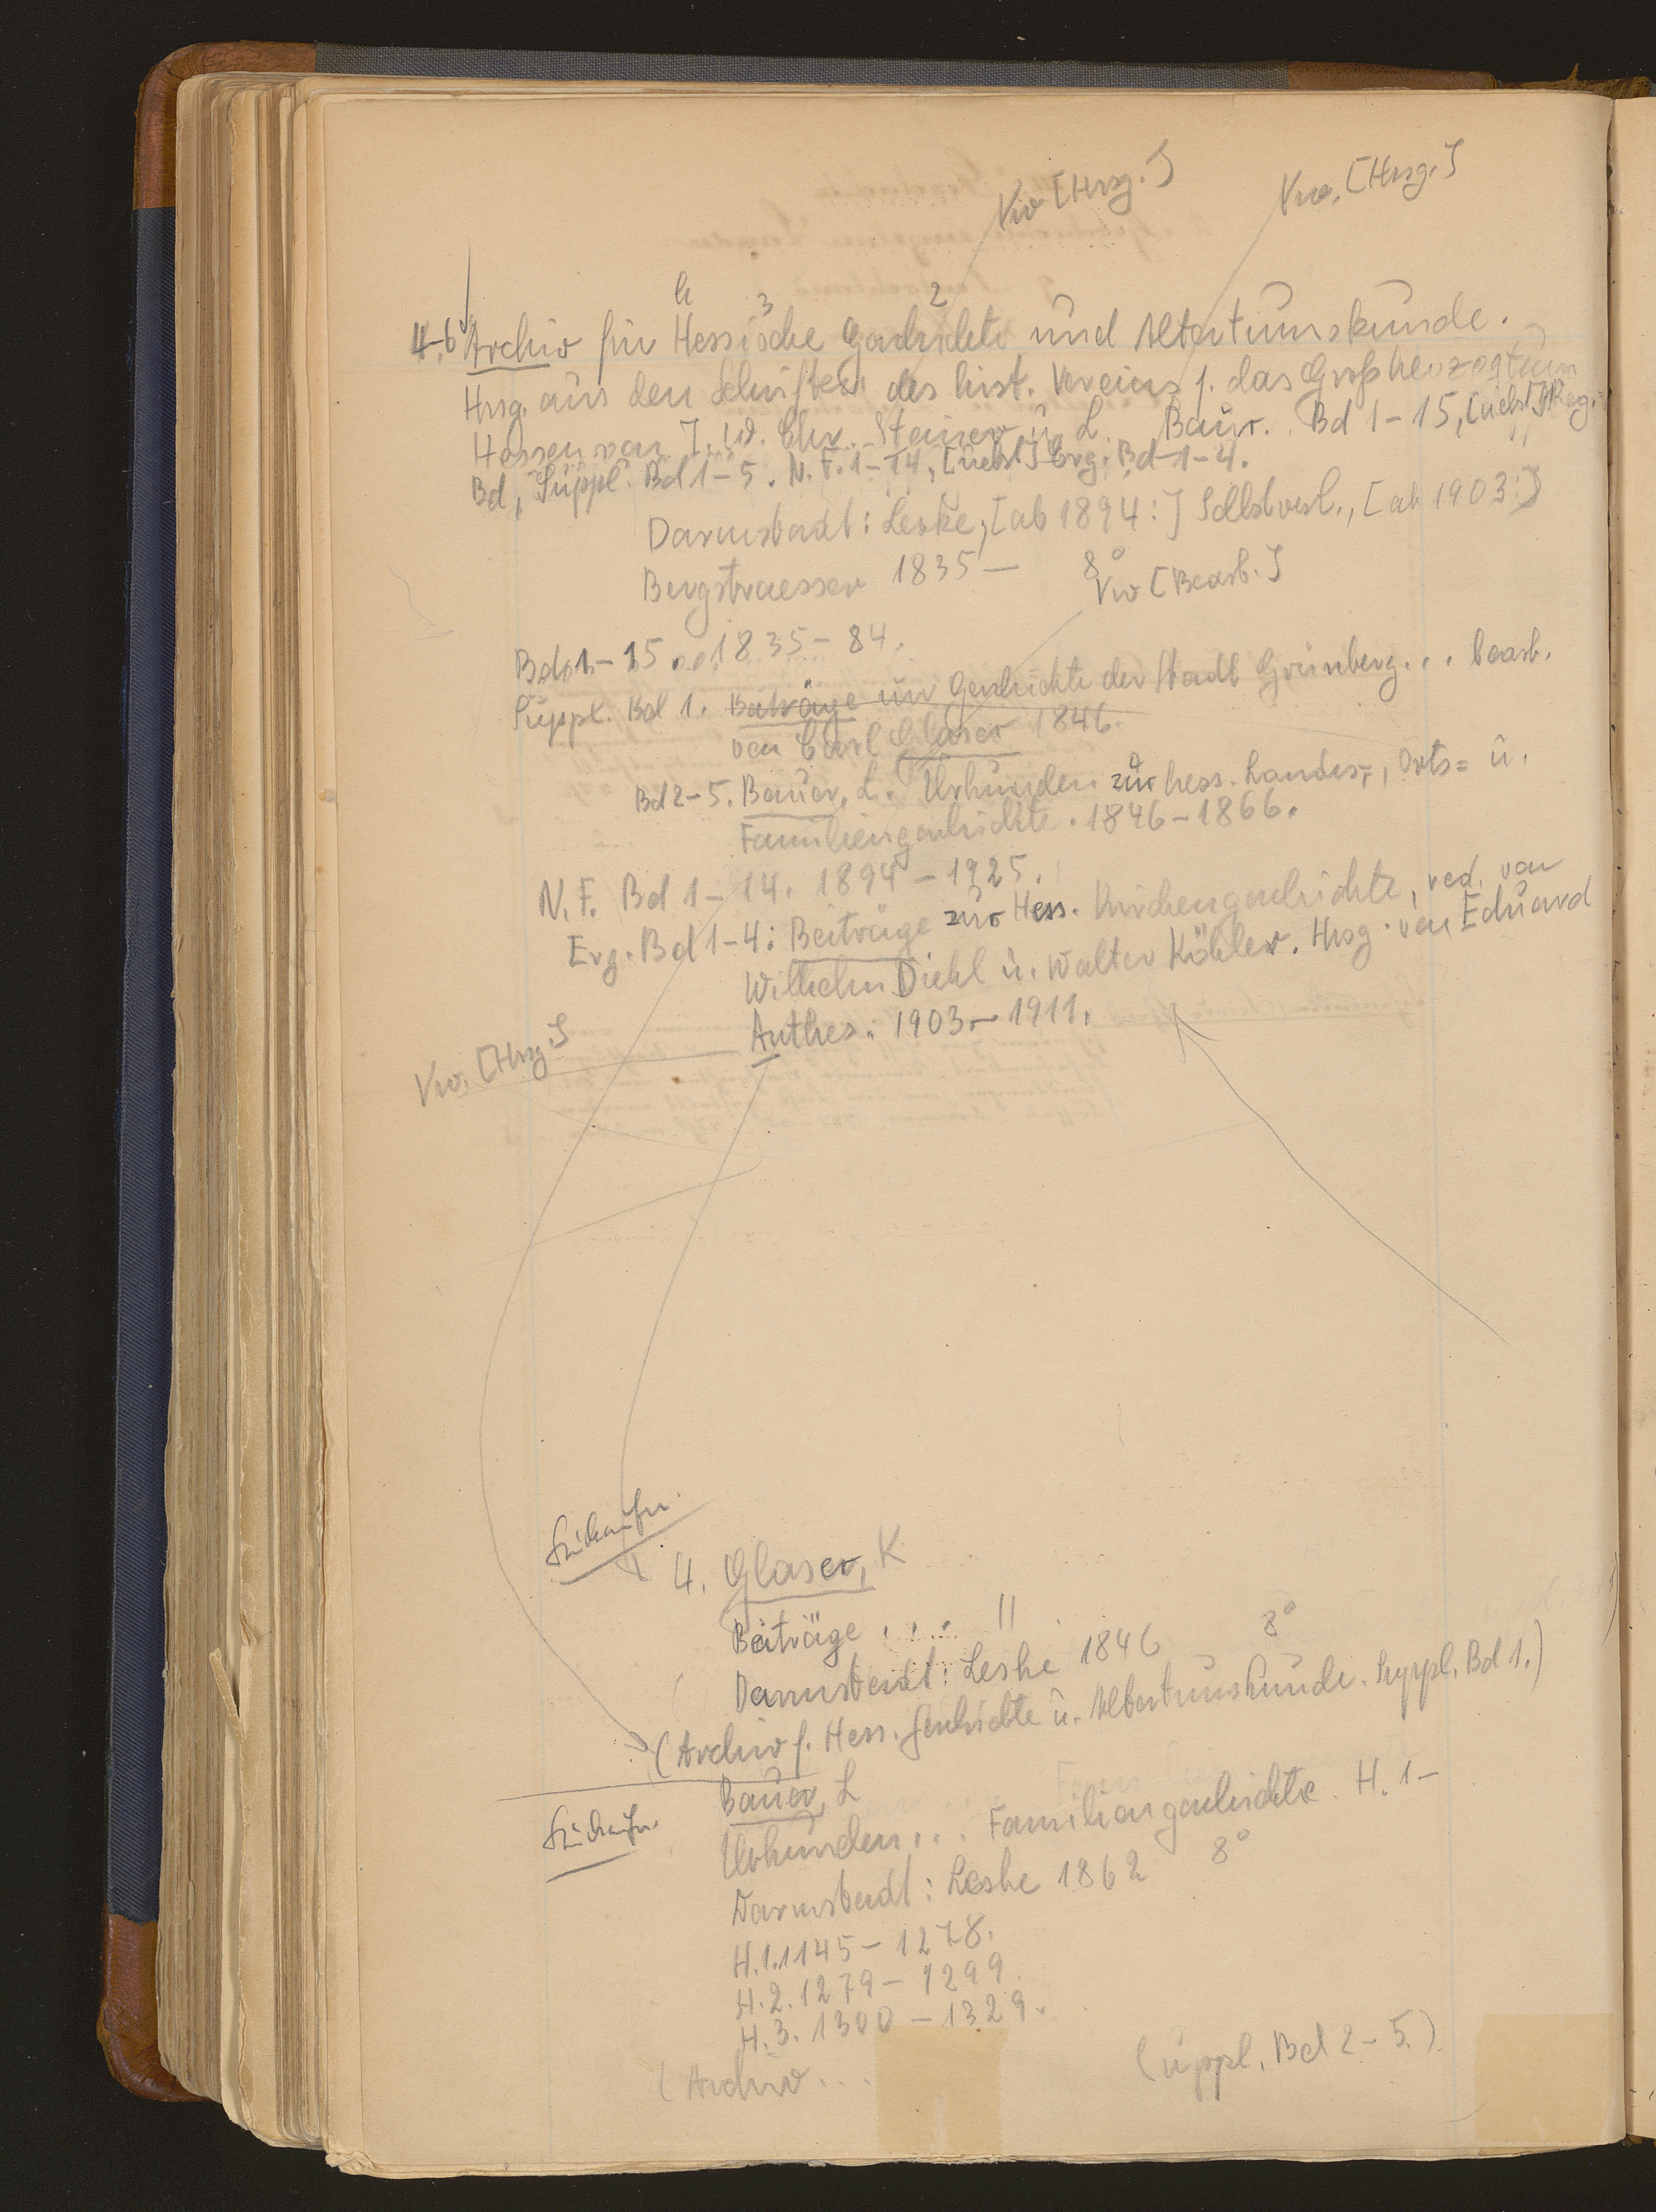 Vw [Hrsg.]
Vw. [Hrsg.]
h 3 2
4-6 Archiv für Hessische Geschichte und Altertumskunde.
Hrsg. aus den Schriften des hist. Vereins f. das Großherzogtum
Hessen von J. W. Chr. Steiner u. L. Baur. Bd 1-15, [nebst] Reg.
Bd, Suppl. Bd 1-5. N. F. 1-14, [nebst] Erg. Bd 1-4.
Darmstadt: Leske, [ab 1894:] Selbstverl., [ab 1903:]
Bergstraesser 1835— 8°
Vw [Bearb.]
Bd 1-15 ... 1835-84.
Suppl. Bd 1. Beiträge zur Geschichte der Stadt Grünberg... bearb.
von Carl Glaser 1846.
Bd 2-5. Bauer, L. Urkunden zur hess. Landes-, Orts= u.
Familiengeschichte. 1846-1866.
N. F. Bd 1-14. 1894-1925.
Erg. Bd 1-4: Beiträge zur Hess. Kirchengeschichte, red. von
Wilhelm Diehl u. Walter Köhler. Hrsg. von Eduard
Anthes. 1903-1911.
Vw. [Hrsg.]
4. Glaser, K
Beiträge .... "
Darmstadt: Leske 1846 8°
(Archiv f. Hess. Geschichte u. Altertumskunde. Suppl. Bd 1.)
Bauer, L
Urkunden... Familiengeschichte. H. 1-
Darmstadt: Leske 1862 8°
H. 1. 1145-1278.
H. 2. 1279-1299.
H. 3. 1300-1329.
(Archiv ... uppl. Bd 2-5.)